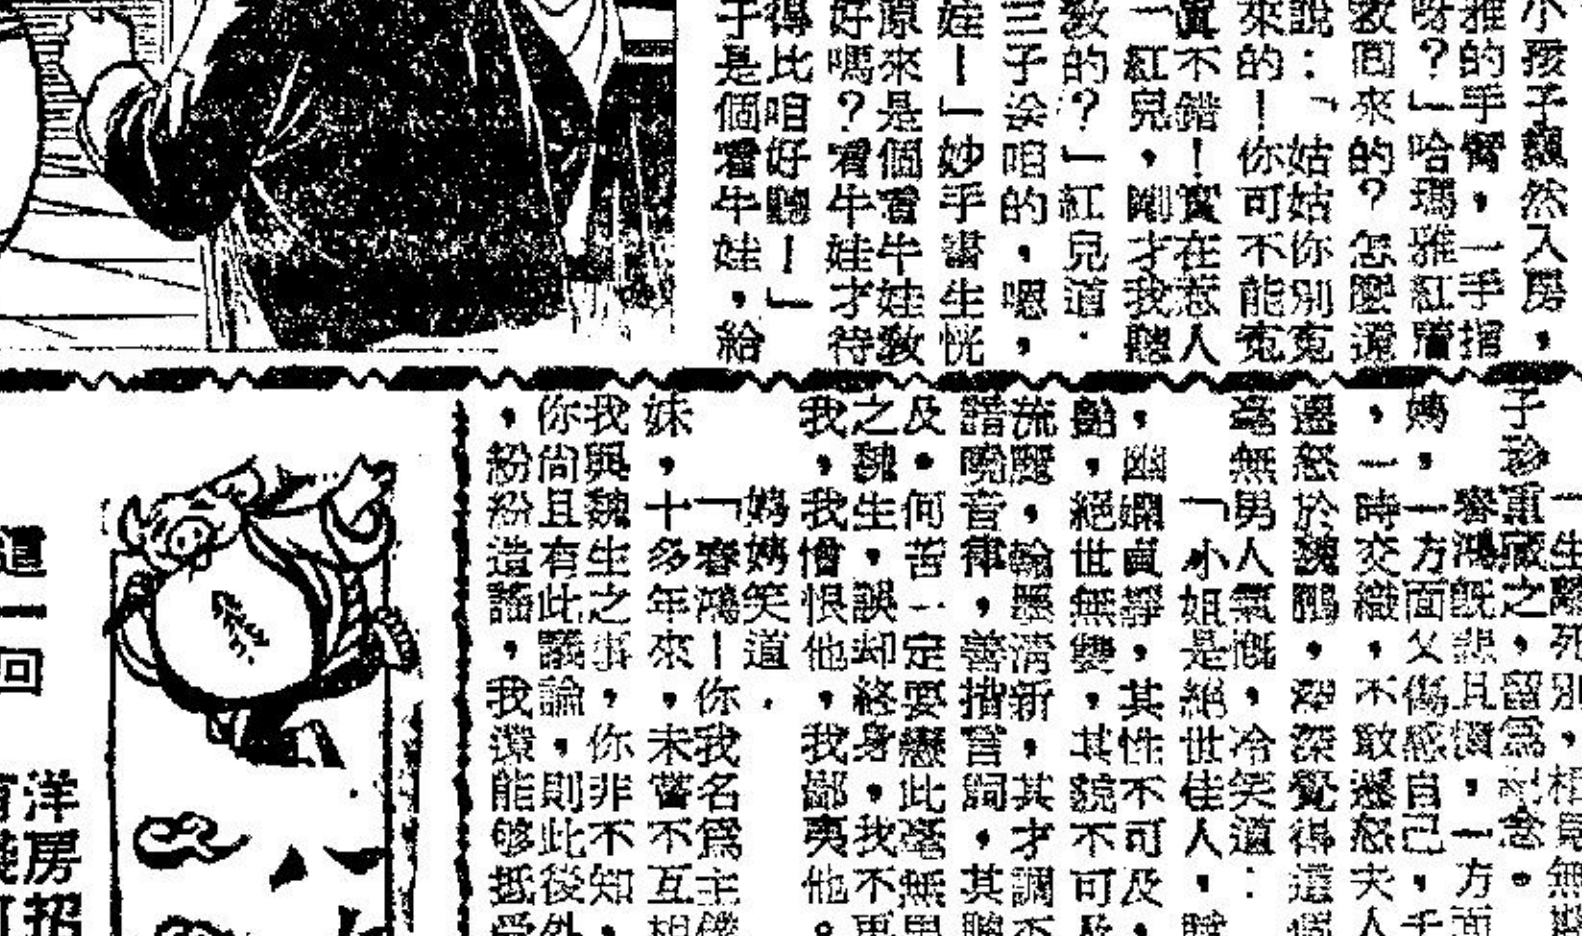 小孩子飄然入房，
雅的手臂，一手指
呀？」哈瑪雅紅
教回來的？怎麼還
說：「姑姑你別冤
來的！你可不能冤
真不錯！實在惹人
「紅兒，剛才我聽
教的？」紅兒道：
三子涂咱的，嗯，
娃！」妙手書生恍
原來是個看牛娃教
好嗎？看牛娃才待
得比咱好聽！」
于是個看牛娃，給
一生離死別，相見無
子珍重藏之，留為紀念。
春鴻既悲且憤，一方面
嫣，一方面又傷感自己，千
，一時交織，不敢遷怒夫人
遷怒於魏鵬，深深覺得這個
毫無男人氣慨，冷笑道：
「小姐是絕世佳人，
，幽嫻貞靜，其性不可及，
艷，絕世無雙，其貌不可及
流麗，翰墨清新，其才調不
諳曉音律，善措言詞，其聰
及。何苦一定要戀此毫無男
之魏生，誤却終身，我不再
我，我憎恨他，我鄙夷他。
嫣嫣笑道：
「春鴻！你我名為主僕
妹，十多年來，未嘗不互相
我與魏生之事，你非不知，
你尚且有此議論，則此後外
，紛紛造謠，我還能够抵受
這一回
洋房招